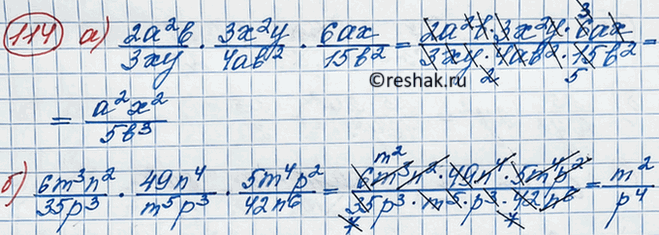 114 а) 2a²b/3xy · 3x²y/4ab² · 6ax/15b² = 2a²b · 3x²y · 6ax/3xy · 4ab² · 15b² = 3 2 5
©reshak.ru
= a²x²/5b³
б) 6m³n²/35p³ · 49n⁴/m⁵p³ · 5m⁴p²/42n⁶ = 6m³n² · 49n⁴ · 5m⁴p²/35p³ · m⁵p³ · 42n⁶ = m²/p⁴ m²